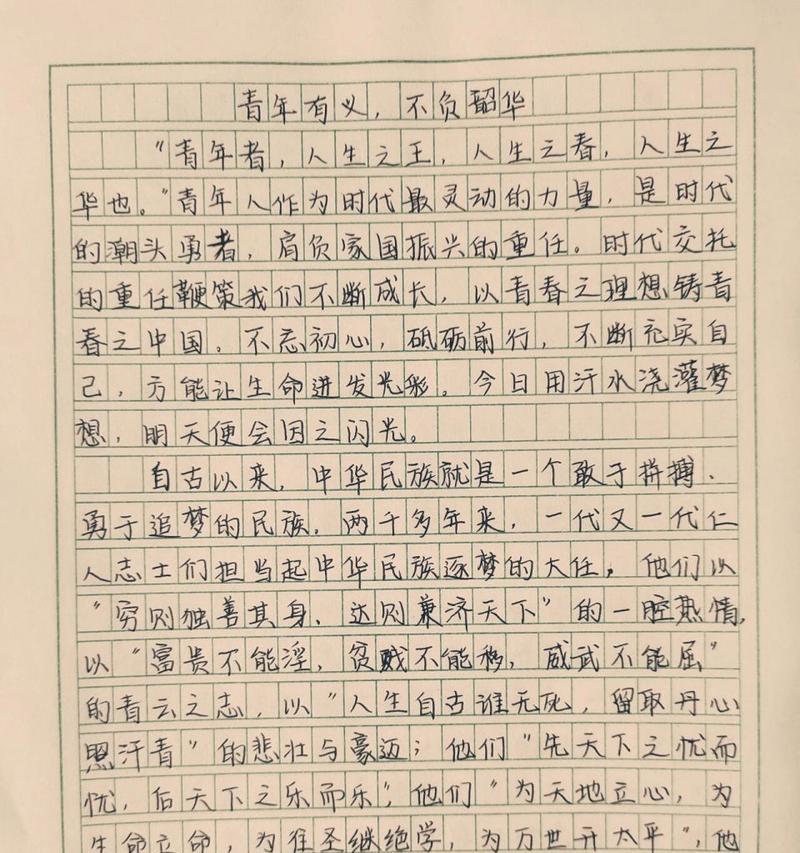 青年有义，不负韶华
“青年者，人生之王，人生之春，人生之
华也。”青年人作为时代最灵动的力量，是时代
的潮头勇者，肩负家国振兴的重任。时代交托
的重任鞭策我们不断成长，以青春之理想铸青
春之中国。不忘初心，砥砺前行，不断充实自
己，方能让生命迸发光彩。今日用汗水浇灌梦
想，明天便会因之闪光。
自古以来，中华民族就是一个敢于拼搏、
勇于追梦的民族，两千多年来，一代又一代仁
人志士们担当起中华民族逐梦的大任，他们以
“穷则独善其身，达则兼济天下”的一腔热情，
以“富贵不能淫，贫贱不能移，威武不能屈”
的青云之志，以“人生自古谁无死，留取丹心
照汗青”的悲壮与豪迈；他们“先天下之忧而
忧，后天下之乐而乐”，他们“为天地立心，为
生命立命，为往圣继绝学，为万世开太平”，他